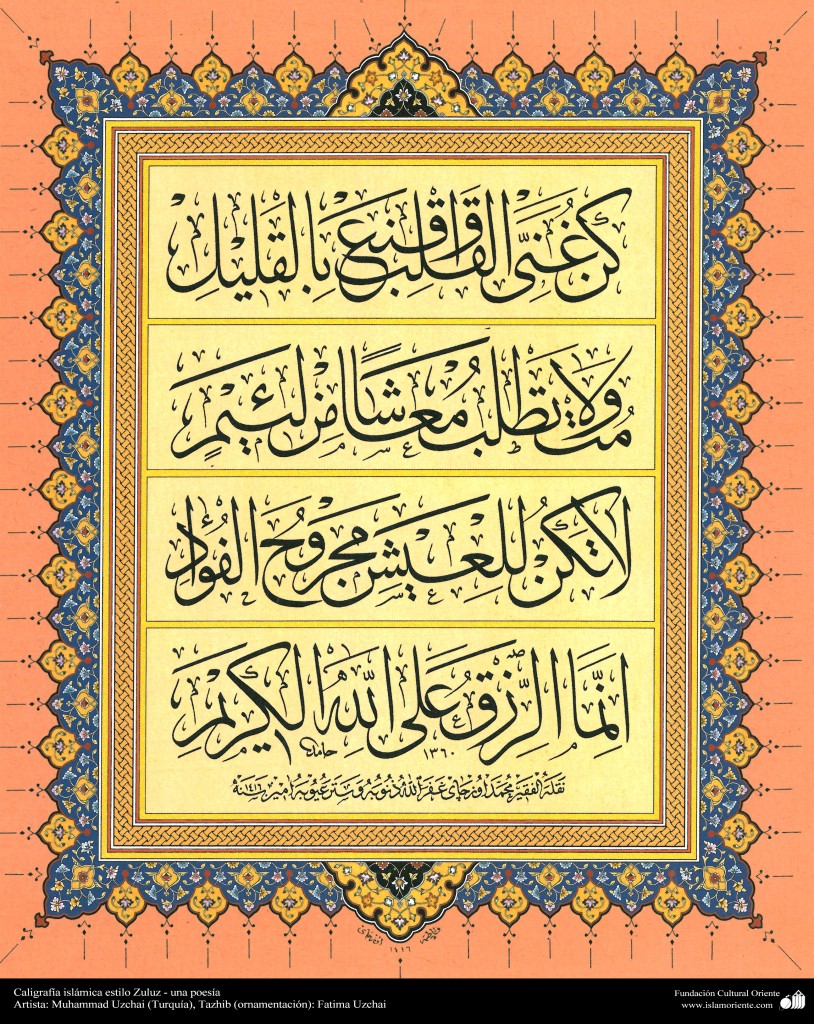 كُنْ غَنِيَّ القَلبِ وَاقْنَعْ بِالقَلِيْلِ
مُتْ وَلَا تَطْلُبْ مَعَاشًا مِنْ لَئِيْمٍ
لَا تَكُنْ لِلْعَيْشِ مَجْرُوْحَ الفُؤَادِ
اِنَّمَا الرِّزْقُ عَلَى اللهِ الكَرِيْمِ
حامد ١٣٦٠
نقله الفقير محمد اوزجاى غفر الله ذنوبه وستر عيوبه امين سنة ١٤١٦
فاطمه اوزجاى
١٤١٦
Caligrafía islámica estilo Zuluz - una poesía
Artista: Muhammad Uzchai (Turquía), Tazhib (ornamentación): Fatima Uzchai
Fundación Cultural Oriente
www.islamoriente.com